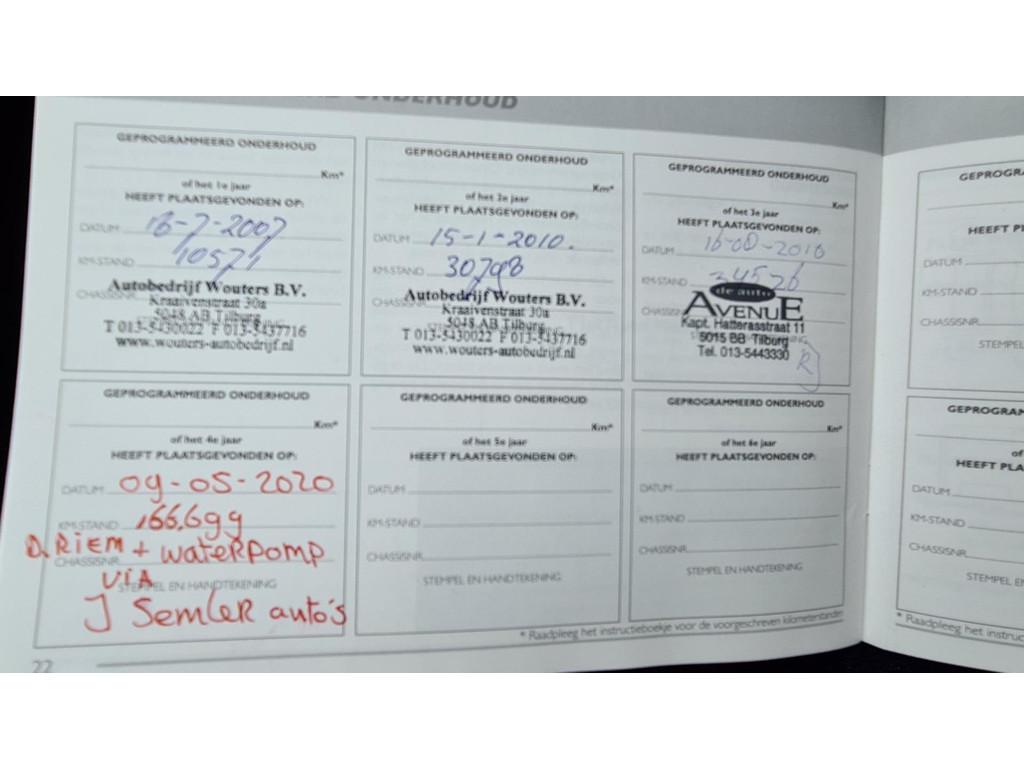 ONDERHOUD
GEPROGRAMMEERD ONDERHOUD
Km*
of het 1e jaar
HEEFT PLAATSGEVONDEN OP:
DATUM 16-7-2007
KM-STAND 10571
CHASSISNR.
Autobedrijf Wouters B.V.
Kraaivenstraat 30a
5048 AB Tilburg
T 013-5430022 F 013-5437716
www.wouters-autobedrijf.nl
GEPROGRAMMEERD ONDERHOUD
Km*
of het 2e jaar
HEEFT PLAATSGEVONDEN OP:
DATUM 15-1-2010.
KM-STAND 30798
CHASSISNR.
Autobedrijf Wouters B.V.
Kraaivenstraat 30a
5048 AB Tilburg
T 013-5430022 F 013-5437716
www.wouters-autobedrijf.nl
GEPROGRAMMEERD ONDERHOUD
Km*
of het 3e jaar
HEEFT PLAATSGEVONDEN OP:
DATUM 16-08-2010
KM-STAND 34526
CHASSISNR.
de auto
AVENUE
Kapt. Hatterasstraat 11
5015 BB Tilburg
Tel. 013-5443330
GEPROGRAMMEERD ONDERHOUD
Km*
of het 4e jaar
HEEFT PLAATSGEVONDEN OP:
DATUM 09-05-2020
KM-STAND 166.699
D. RIEM + waterpomp
CHASSISNR.
VIA
STEMPEL EN HANDTEKENING
J Semler auto's
GEPROGRAMMEERD ONDERHOUD
Km*
of het 5e jaar
HEEFT PLAATSGEVONDEN OP:
DATUM
KM-STAND
CHASSISNR.
STEMPEL EN HANDTEKENING
GEPROGRAMMEERD ONDERHOUD
Km*
of het 6e jaar
HEEFT PLAATSGEVONDEN OP:
DATUM
KM-STAND
CHASSISNR.
STEMPEL EN HANDTEKENING
* Raadpleeg het instructieboekje voor de voorgeschreven kilometerstanden
22
GEPROGR
HEEFT PL
DATUM
KM-STAND
CHASSISNR.
STEMPEL
GEPROGRAM
of
HEEFT PLA
DATUM
KM-STAND
CHASSISNR.
STEMPEL EN
* Raadpleeg het instruc